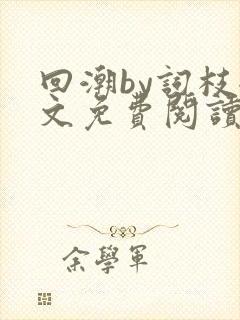 回潮by词枝
文免費閱讀
余學軍